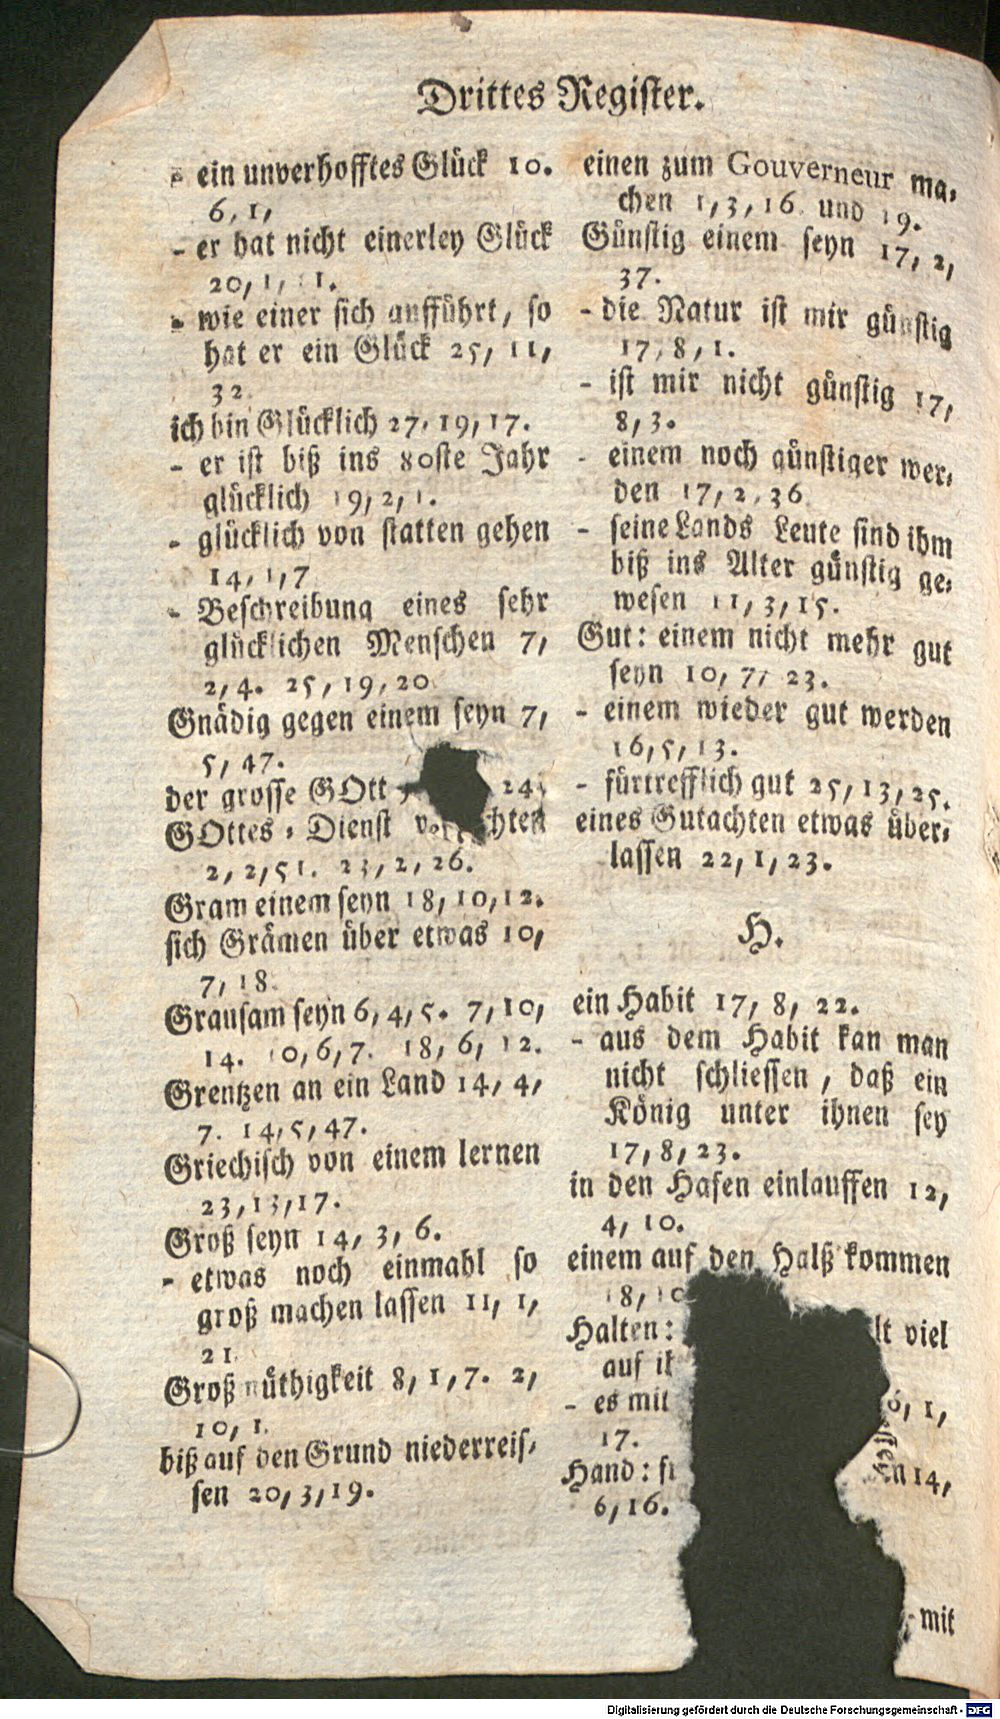 Drittes Register.
- ein unverhofftes Glück 10.
6, 1,
- er hat nicht einerley Glück
20, 1, 1.
- wie einer sich aufführt, so
hat er ein Glück 25, 11,
32.
ich bin Glücklich 27, 19, 17.
- er ist biß ins 80ste Jahr
glücklich 19, 2, 1.
- glücklich von statten gehen
14, 1, 7
- Beschreibung eines sehr
glücklichen Menschen 7,
2, 4. 25, 19, 20
Gnädig gegen einem seyn 7,
5, 47.
der grosse GOtt 24,
GOttes-Dienst
2, 2, 51. 23, 2, 26.
Gram einem seyn 18, 10, 12.
sich Grämen über etwas 10,
7, 18.
Grausam seyn 6, 4, 5. 7, 10,
14. 10, 6, 7. 18, 6, 12.
Grentzen an ein Land 14, 4,
7. 14, 5, 47.
Griechisch von einem lernen
23, 13, 17.
Groß seyn 14, 3, 6.
- etwas noch einmahl so
groß machen lassen 11, 1,
21.
Großmüthigkeit 8, 1, 7. 2,
10, 1.
biß auf den Grund niederreis-
sen 20, 3, 19.
einen zum Gouverneur ma-
chen 1, 3, 16. und 19.
Günstig einem seyn 17, 2,
37.
- die Natur ist mir günstig
17, 8, 1.
- ist mir nicht günstig 17,
8, 3.
- einem noch günstiger wer-
den 17, 2, 36
- seine Lands Leute sind ihm
biß ins Alter günstig ge-
wesen 11, 3, 15.
Gut: einem nicht mehr gut
seyn 10, 7, 23.
- einem wieder gut werden
16, 5, 13.
- fürtrefflich gut 25, 13, 25.
eines Gutachten etwas über-
lassen 22, 1, 23.
H.
ein Habit 17, 8, 22.
- aus dem Habit kan man
nicht schliessen, daß ein
König unter ihnen sey
17, 8, 23.
in den Hafen einlauffen 12,
4, 10.
einem auf den Halß kommen
18, 10
Halten: viel
auf
- es mit 6, 1,
17.
Hand: 14,
6, 16.
mit
Digitalisierung gefördert durch die Deutsche Forschungsgemeinschaft - DFG